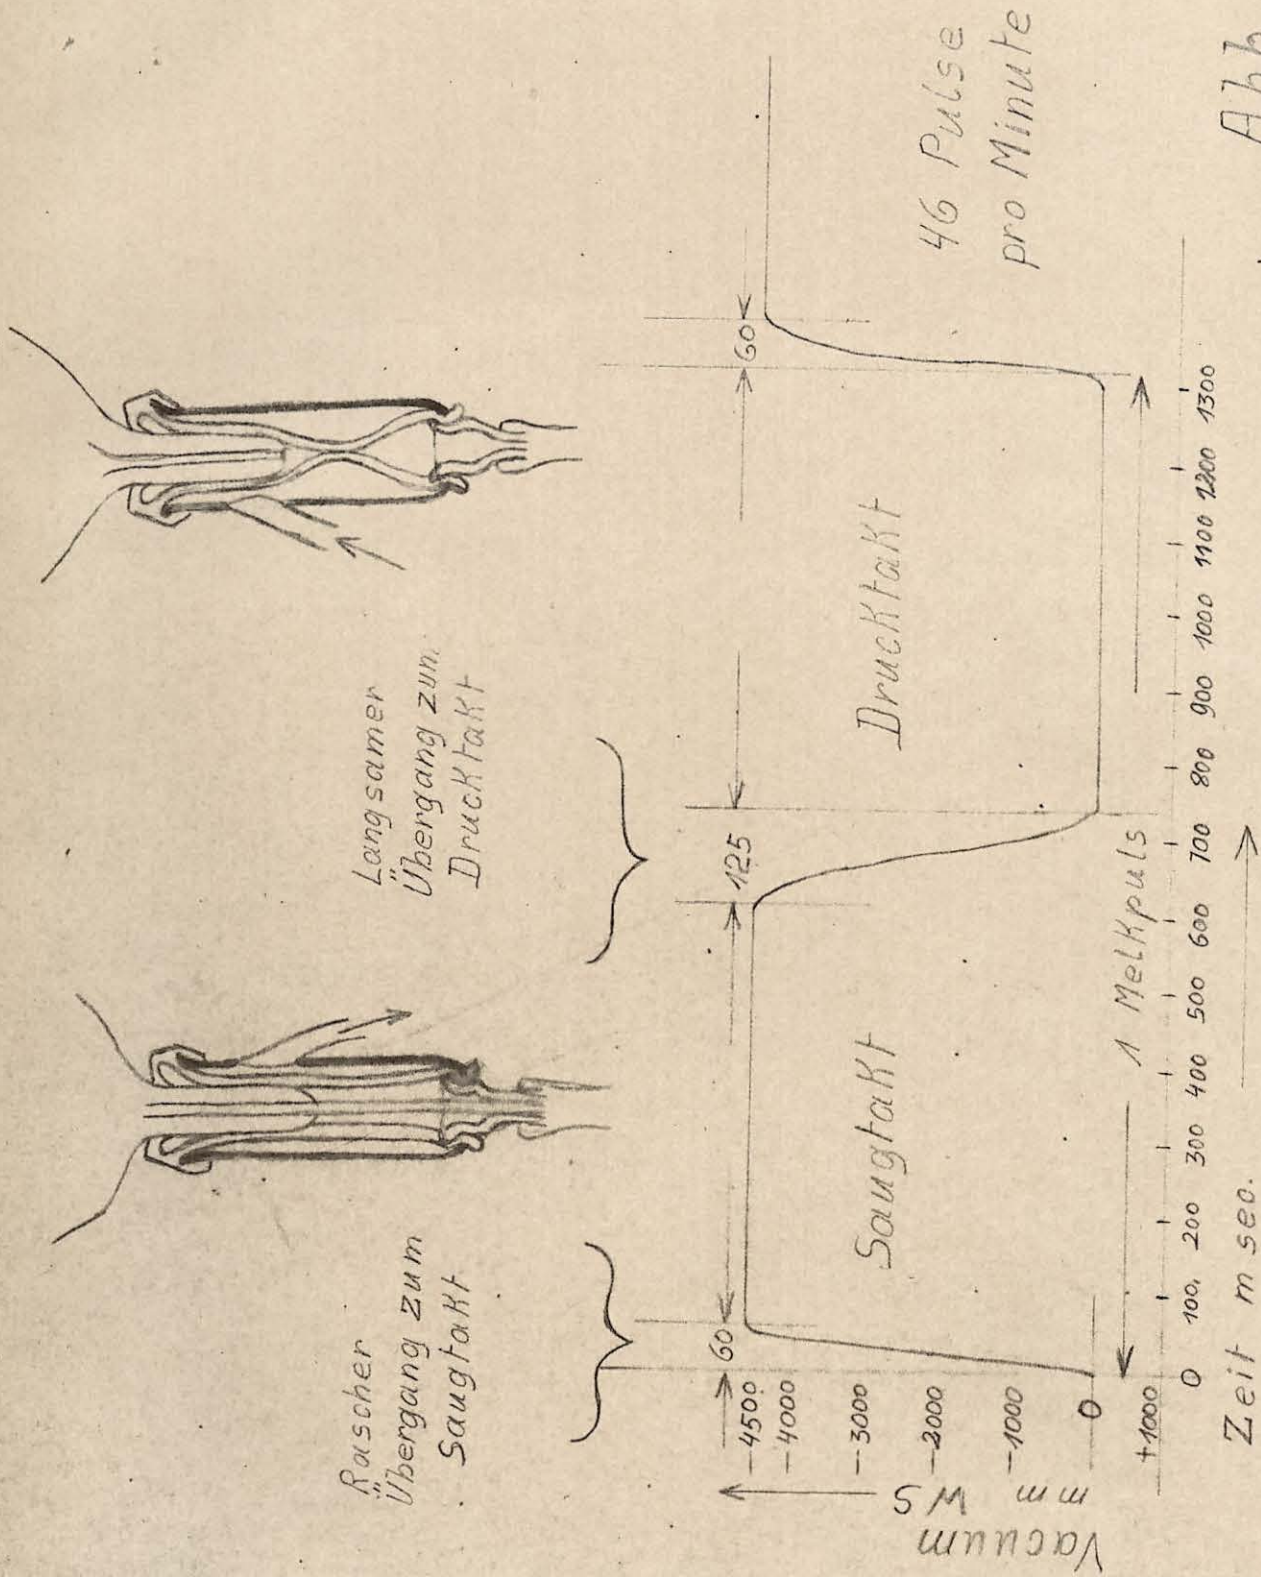 Rascher
Übergang zum
Saugtakt
Langsamer
Übergang zum
Drucktakt
Vacuum
mm WS
-4500
-4000
-3000
-2000
-1000
0
+1000
60
125
60
Saugtakt
Drucktakt
46 Pulse
pro Minute
1 Melkpuls
0 100 200 300 400 500 600 700 800 900 1000 1100 1200 1300
Zeit m sec.
Abb